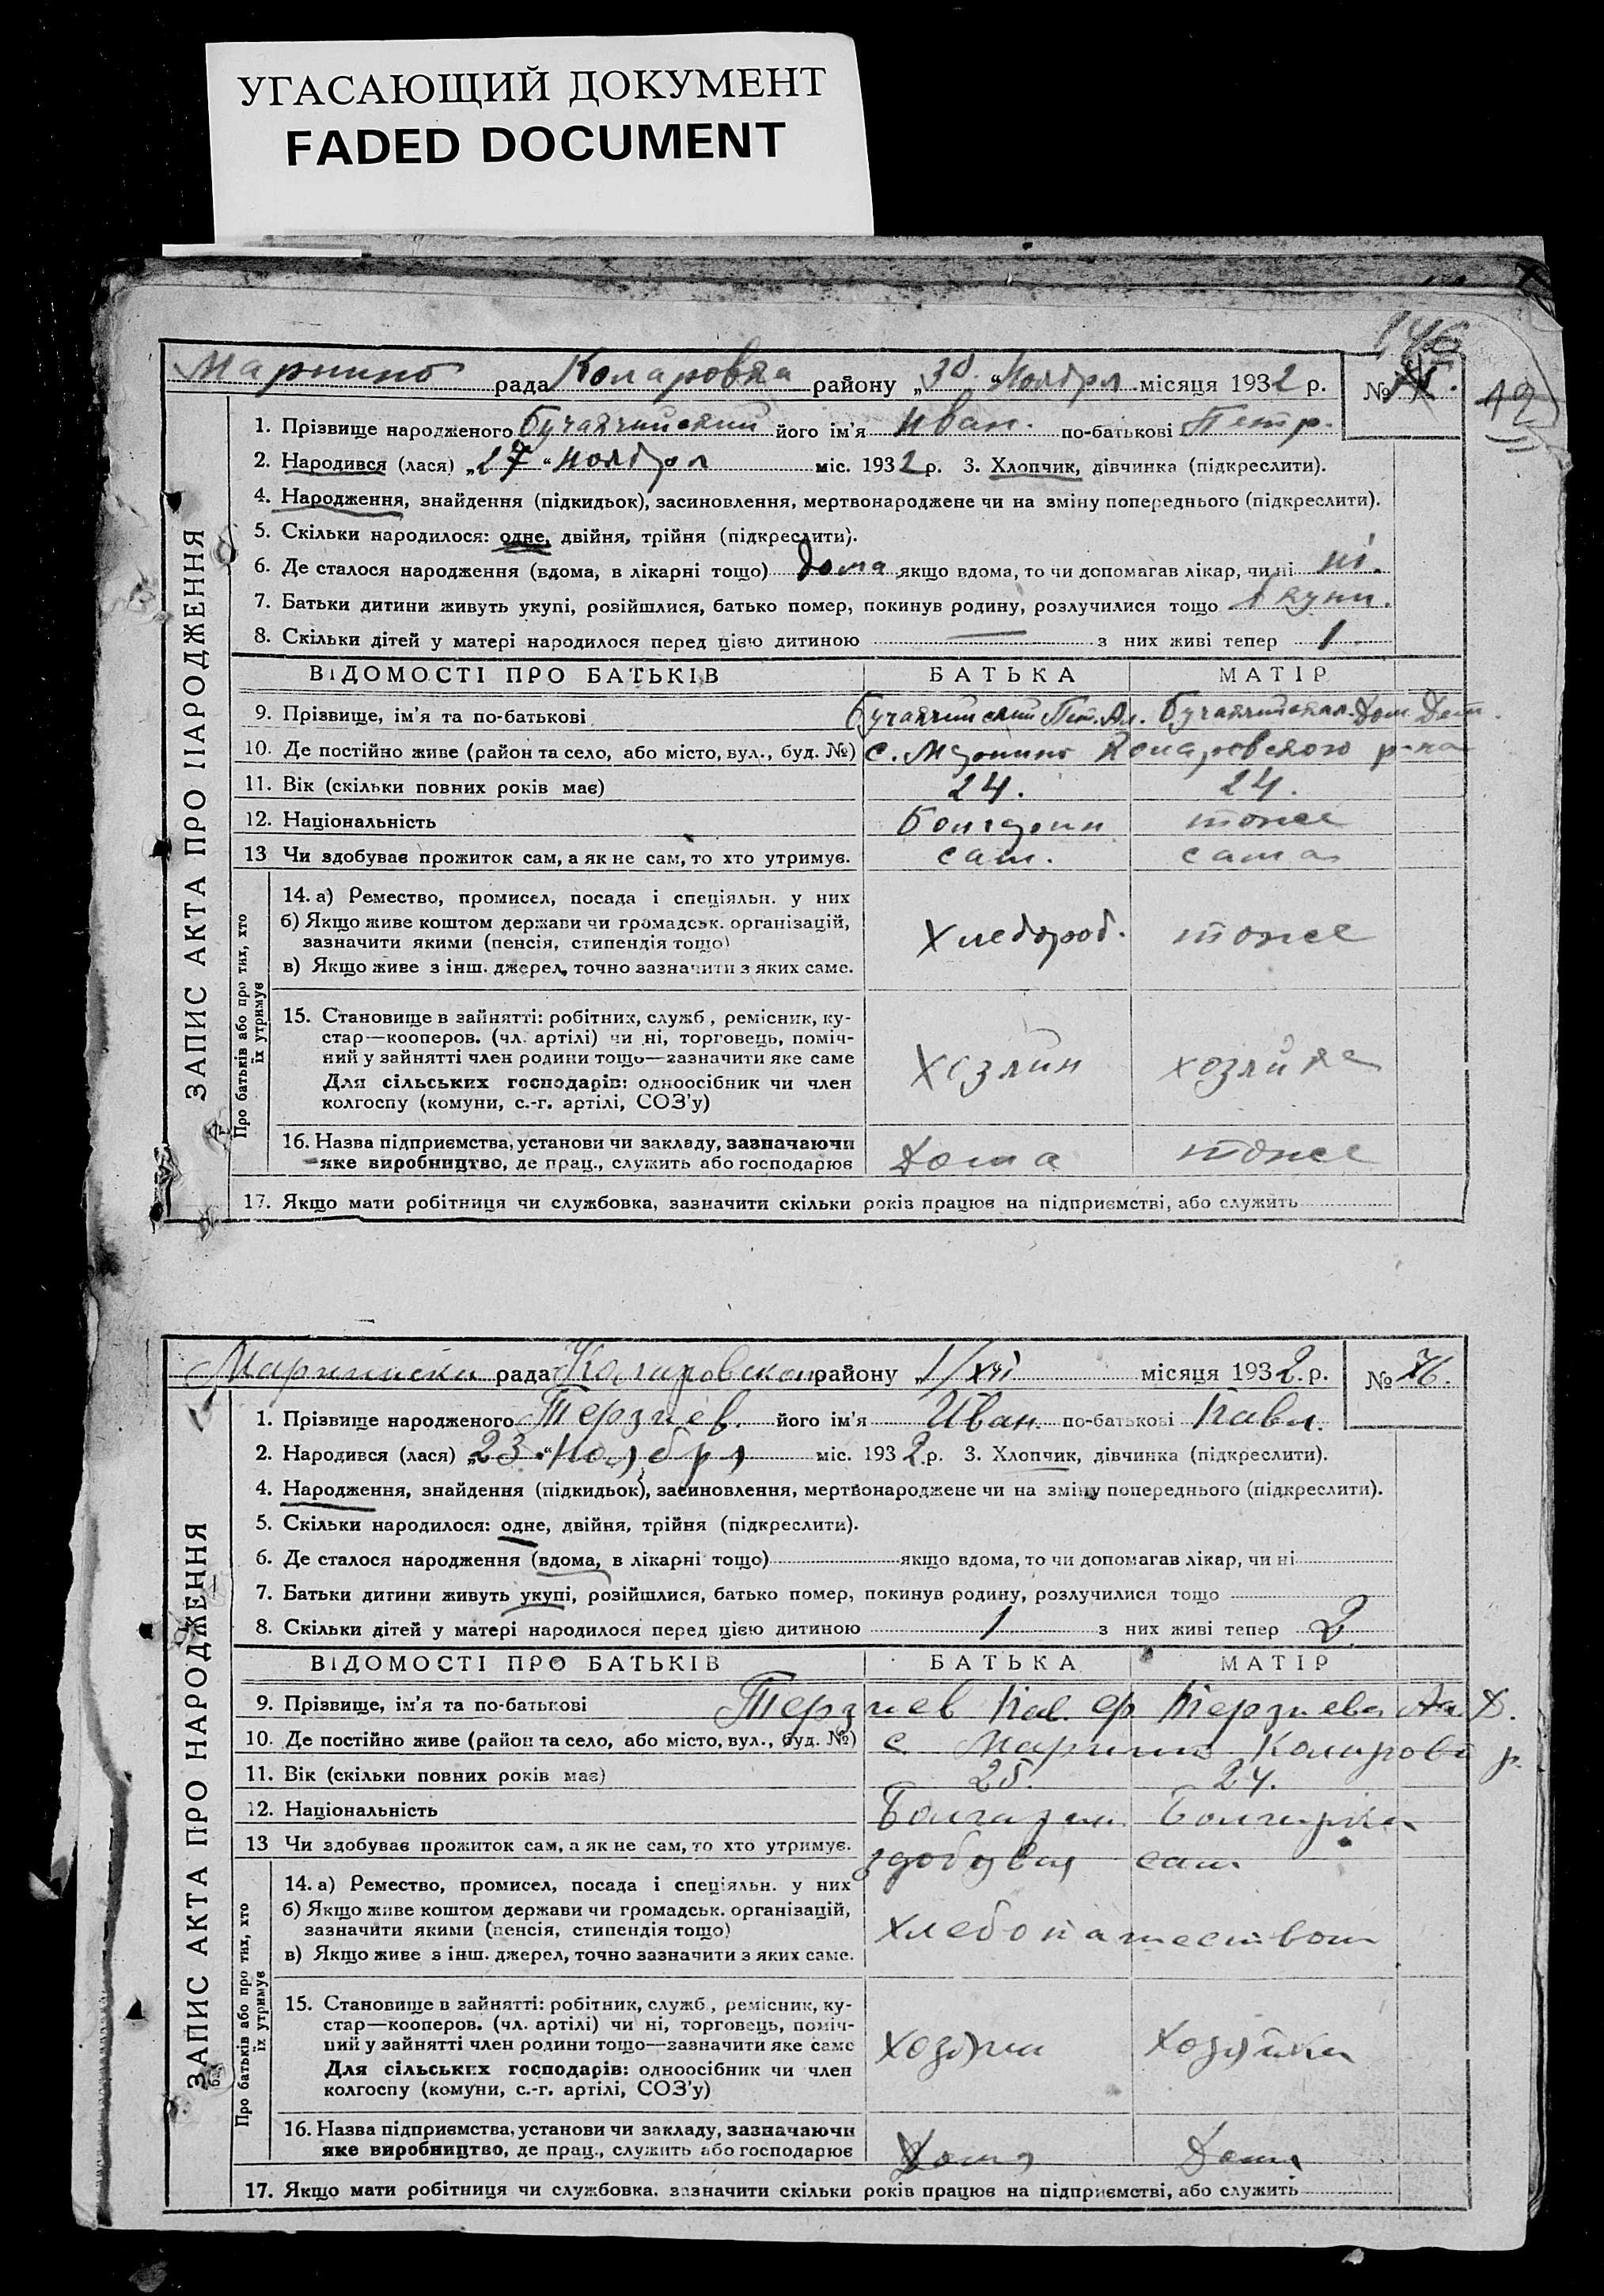 УГАСАЮЩИЙ ДОКУМЕНТ
FADED DOCUMENT
146
12
Мариино рада Коларовка району „30“ Ноября місяця 1932 р. №
1. Прізвище народженого його ім'я Иван. по-батькові Петр.
2. Народився (лася) „27“ ноября міс. 1932 р. 3. Хлопчик, дівчинка (підкреслити).
4. Народження, знайдення (підкидьок), засиновлення, мертвонароджене чи на зміну попереднього (підкреслити).
5. Скільки народилося: одне, двійня, трійня (підкреслити).
6. Де сталося народження (вдома, в лікарні тощо) дома якщо вдома, то чи допомагав лікар, чи ні ні.
7. Батьки дитини живуть укупі, розійшлися, батько помер, покинув родину, розлучилися тощо
8. Скільки дітей у матері народилося перед цією дитиною — з них живі тепер 1
ВІДОМОСТІ ПРО БАТЬКІВ БАТЬКА МАТІР
9. Прізвище, ім'я та по-батькові
10. Де постійно живе (район та село, або місто, вул., буд. №) с. Мариино Коларовского р-на
11. Вік (скільки повних років має) 24. 24.
12. Національність Болгарин тоже
13 Чи здобуває прожиток сам, а як не сам, то хто утримує. сам. сама
14. а) Ремество, промисел, посада і спеціяльн. у них
б) Якщо живе коштом держави чи громадськ. організацій,
зазначити якими (пенсія, стипендія тощо) Хлебороб. тоже
в) Якщо живе з інш. джерел, точно зазначити з яких саме.
15. Становище в зайнятті: робітник, служб., ремісник, ку-
стар—кооперов. (чл. артілі) чи ні, торговець, поміч-
ний у зайнятті член родини тощо—зазначити яке саме Хозяин хозяйка
Для сільських господарів: одноосібник чи член
колгоспу (комуни, с.-г. артілі, СОЗ'у)
16. Назва підприємства, установи чи закладу, зазначаючи
яке виробництво, де прац., служить або господарює Дома тоже
17. Якщо мати робітниця чи службовка, зазначити скільки років працює на підприємстві, або служить
ЗАПИС АКТА ПРО НАРОДЖЕННЯ
Про батьків або про тих, хто
їх утримує
рада Коларовского району „1/XII місяця 1932 р. № 76.
1. Прізвище народженого Терзиев. його ім'я Иван по-батькові Павл.
2. Народився (лася) „23“ Ноября міс. 1932 р. 3. Хлопчик, дівчинка (підкреслити).
4. Народження, знайдення (підкидьок), засиновлення, мертвонароджене чи на зміну попереднього (підкреслити).
5. Скільки народилося: одне, двійня, трійня (підкреслити).
6. Де сталося народження (вдома, в лікарні тощо) якщо вдома, то чи допомагав лікар, чи ні
7. Батьки дитини живуть укупі, розійшлися, батько помер, покинув родину, розлучилися тощо
8. Скільки дітей у матері народилося перед цією дитиною 1 з них живі тепер 2
ВІДОМОСТІ ПРО БАТЬКІВ БАТЬКА МАТІР
9. Прізвище, ім'я та по-батькові Терзиев Пав. Терзиева
10. Де постійно живе (район та село, або місто, вул., буд. №) с Марино р.
11. Вік (скільки повних років має) 25. 24.
12. Національність Болгарин Болгарка
13 Чи здобуває прожиток сам, а як не сам, то хто утримує. сам
14. а) Ремество, промисел, посада і спеціяльн. у них
б) Якщо живе коштом держави чи громадськ. організацій,
зазначити якими (пенсія, стипендія тощо) хлебопашеством
в) Якщо живе з інш. джерел, точно зазначити з яких саме.
15. Становище в зайнятті: робітник, служб., ремісник, ку-
стар—кооперов. (чл. артілі) чи ні, торговець, поміч-
ний у зайнятті член родини тощо—зазначити яке саме хозяин хозяйка
Для сільських господарів: одноосібник чи член
колгоспу (комуни, с.-г. артілі, СОЗ'у)
16. Назва підприємства, установи чи закладу, зазначаючи
яке виробництво, де прац., служить або господарює Дома Дома
17. Якщо мати робітниця чи службовка, зазначити скільки років працює на підприємстві, або служить
ЗАПИС АКТА ПРО НАРОДЖЕННЯ
Про батьків або про тих, хто
їх утримує